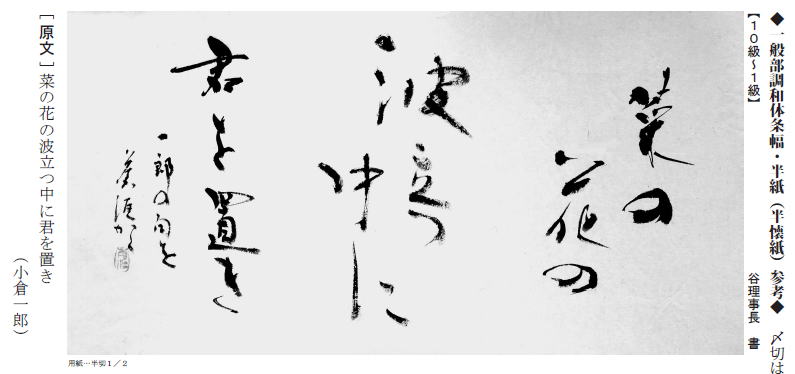 ◆一般部調和体条幅・半紙（半懐紙）参考◆　〆切は
【１０級～１級】　谷理事長　書
菜の
花の
波
立つ
中に
君を置き
一郎の句を
［原文］菜の花の波立つ中に君を置き
（小倉一郎）
用紙…半切１／２